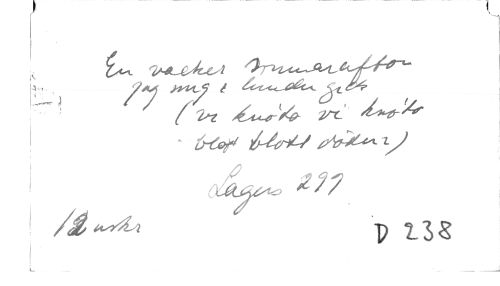 En vacker sommarafton
jag mig i lunden gick
(vi knöto vi knöto
blott blott rosor)
Lagers 297
12 utskr
D 238